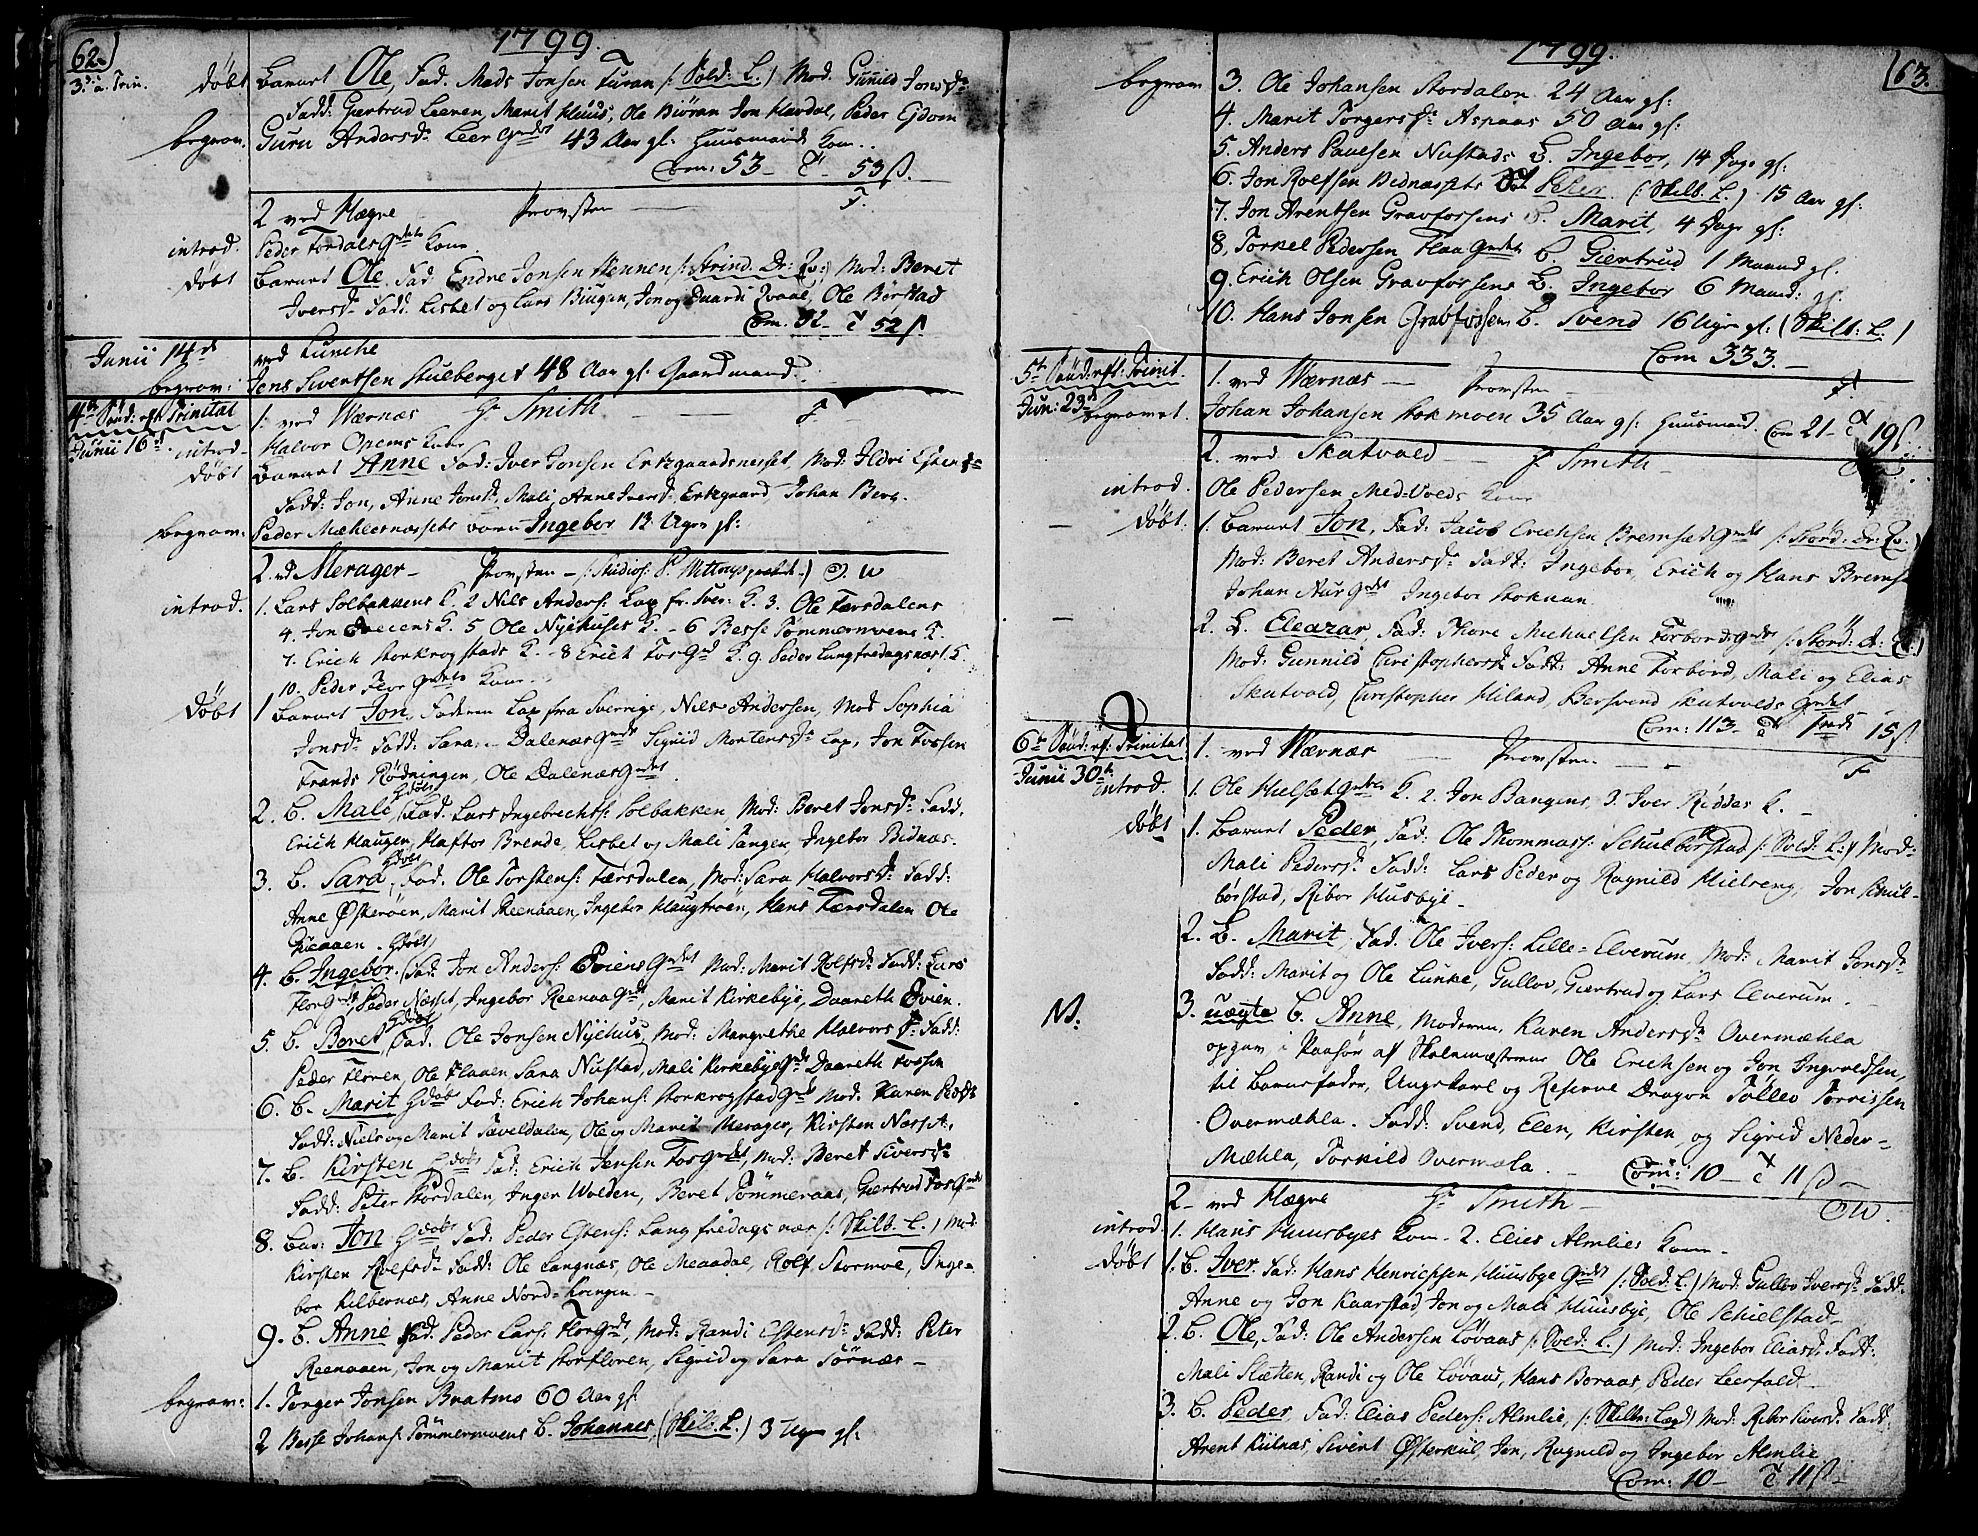 62.
1799.
3die S. Trin. døbt Barnet Ole, Fad. Mads Jonsen (: Sold: L.) Mod. Gunild Jonsdr
Fadd: Giertrud Leeren, Marit Huus, Ole Biøran Jon Havdal, Peder Ejdom
begrav. Guru Andersdr Leer Grdet 43 Aar gl: Huusmands Kone.
Com: 53 - T 53 ß.
2 ved Hegre - Provsten F.
introd. Peder Fordals Grdets Kone.
døbt Barnet Ole. Fad Endre Jonsen Hennen (: Strind. Dr: Qv:) Mod: Beret
Iversdr Fadd. Lisbet og Lars Biugen, Jon og Qvaal, Ole Børstad
Com. 92 - T 52 ß
Junii 14d ved Lunche
begrav: Jens Siventsen Stulberget 48 Aar gl: Gaardmand.
4de Sønd: eft: Trinitat 1. ved Værnæs - Hr Smith - F.
Junii 16d introd - Halvor Opems Kone
døbt Barnet Anne Fad: Iver Jonsen Erksgaardsnesset, Mod: Ildri Estensdr
Fadd: Jon, Anne Jonsdr, Mali, Anne Iversdr Erksgaard Johan Berg.
begrav: Peder Mæhlernæssets Barn Ingebor 12 Uger gl:
2. ved Merager - Provsten - (: Studios: P. Wittrup prædikede:) O. W
introd. 1. Lars Solbakkens K. 2 Nils Anders: Lap fr. Sver: K. 3. Ole Færsdalens
4. Jon Eviens K. 5 Ole Nyehuses K. - 6 Besse Tømmermoens K.
7. Erich Storkrogstads K. - 8 Erich Fos Grd K. 9. Peder Langfredagsnæs K.
10. Peder Flor Grdets Kone.
døbt 1 Barnet Jon, Faderen Lap fra Sverrige, Nils Andersen, Mod Sophia
Jonsdr Fadd: Sara Dalenæs Grdet Sigrid Mortensdr Lap, Jon Fossen
Trends Rødningen, Ole Dalenæs Grdet.
2. B. Mali Gdøbt, Fad. Lars Ingebrechts: Solbakken, Mod: Beret Jonsdr Fadd.
Erich Haugen, Haftor Brende, Lisbet og Mali Langen, Ingebor Bidnæs.
3. B. Sara Gdøbt, Fad. Ole Torstens: Færsdalen, Mod: Sara Halvorsdr Fadd:
Anne Østerøen, Marit Reenaaen, Ingebor Haugtrøen, Hans Færsdalen Ole
Gieaaen.
4. B. Ingebor Gdøbt, Fad Jon Anders: Eviens Grdet Mod: Marit Rolfsdr Fadd: Lars
Flor Grdet, Peder Næsset, Ingebor Reenaa Grdet, Marit Kirkebye, Daareth Evien.
5. B. Beret Gdøbt, Fad. Ole Jonsen Nyehus, Mod: Mangrethe Halvorsdr Fadd:
Peder Floren, Ole Flaaen Sara Nustad, Mali Kirkebye Grdet Daareth Fossen
6. B. Marit Gdøbt Fad. Erich Johans: Storkrogstad Grdet Mod. Karen Rolfsdr
Fadd: Niels og Marit Faveldalen, Ole og Marit Merager, Kirsten Næsset,
7. B. Kirsten Gdøbt Fad: Erich Jensen Fos Grdet, Mod: Beret Siversdr
Fadd: Peter Stordalen, Inger Wolden, Beret Tømmeraas, Giertrud Fos Grdet
8. Bar: Jon Gdøbt Fad: Peder Estens: Langfredagsnæs (: Skilb: L.) Mod.
Kirsten Rolfsdr Fadd: Ole Langnæs, Ole Meaadal, Rolf Stormoe, Inge-
bor Kilbernæs, Anne Nord-Kringen.
9. B. Anne Fad: Peder Lars: Flor Grdet, Mod: Randi Estensdr Fadd: Peter
Reenaaen, Jon og Marit Storfloren, Sigrid og Sara Tørnæs -
begrav: 1. Torger Jonsen Bratmo 60 Aar gl:
2 Besse Johans: Tømmermoens B. Johannes, (Skilb. L.) 3 Uger gl:
1799.
63.
begrav 3. Ole Johansen Stordalen 24 Aar gl:
4. Marit Torgersdr Aspaas 50 Aar gl:
5. Anders Pauesen Nustads B. Ingebor, 14 Dage gl:
6. Jon Rolfsen Bidnæssets Peter. (: Skilb. L.) 15 Aar gl:
7. Jon Arentsen Gravfossens B. Marit, 4 Dage gl:
8. Torkel Pedersen Flaa Grdets B. Giertrud 1 Maaned gl.
9. Erich Olsen Gravfossens B. Ingebor 6 Maaned: gl:
10. Hans Jonsen Gravfossens B. Svend 16 Uger gl: (Skilb: L.)
Com 333. -
5te Sønd: eft: Trinit. 1. ved Wærnæs - Provsten - F
Jun: 23d begravet. Johan Johansen Stokmoen 35 Aar gl: Huusmand. Com 21 - T 19 ß.
2. ved Skatvold - Hr Smith -
introd. Ole Pedersen Med-Volds Kone
døbt. 1. Barnet Jon, Fad: Jacob Erichsen Bremsæt Grdet (: Størd: Dr: Qv.)
Mod: Beret Andersdr Fadd: Ingebor, Erich og Hans Bremsæt
Johan Aur Grdet Ingebor Stoknan.
2. B. Eleazar, Fad: Thore Michaelsen Forbords Grdet (: Størd: Dr: Qv:)
Mod: Gunnild Christophersdr Fadd: Anne Forbord, Mali og Elias
Skatvold, Christopher Hiland, Bersvend Skatvolds Grdet
Com: 113. T 15 ß.
6te Sønd: eft: Trinitat. 1. ved Værnæs - Provsten - F
Junii 30te introd. 1. Ole Hielset Grdets K. 2. Jon Bangens, 3. Iver Røddes K. -
døbt 1. Barnet Peder, Fad: Ole Thommass: Schulbørstad (: Sold: L:) Mod:
Mali Pedersdr Fadd: Lars Peder og Ragnild Hielseng, Jon Schul-
børstad, Ribor Husbye -
2. B. Marit, Fad. Ole Ivers: Lille-Elverum, Mod: Marit Jonsdr
Fadd: Marit og Ole Lunke, Gullov, Giertrud og Lars Elverum.
N: 3. uægte B. Anne, Moderen Karen Andersdr Overmæhla
opgav i Paahør af Skolemesterne Ole Erichsen og Jon Ingvoldsen,
til Barnefader, Ungkarl og Reserve Dragon Tollev Torrissen
Overmæhla. Fadd: Svend, Elen, Kirsten og Sigrid Neder-
Mæhla, Torkild Overmæla. - Com: 10 - T 11 ß -
2 - ved Hægre Hr Smith - OW.
introd. 1. Hans Huusbyes Kone - 2. Elies Almlies Kone -
døbt 1. B. Iver. Fad: Hans Henrichsen Huusbye Grdet (: Sold: L:) Mod: Gullov Iversdr Fadd:
Anne og Jon Kaarstad, Jon og Mali Huusbye, Ole Schielstad
2. B. Ole, Fad: Ole Andersen Løvaas (: Sold. L.) Mod: Ingebor Eliasdr Fadd:
Mali Sletten, Randi og Ole Løvaas, Hans Boraas, Peder Leerfald
3. B. Peder, Fad: Elias Peders: Almlie, (: Skilb: Lægd) Mod: Ribor Siversdr Fadd:
Arent Kulnæs, Sivert Østerkil, Jon, Ragnild og Ingebor Almlie
Com: 10 - T. 11 ß -